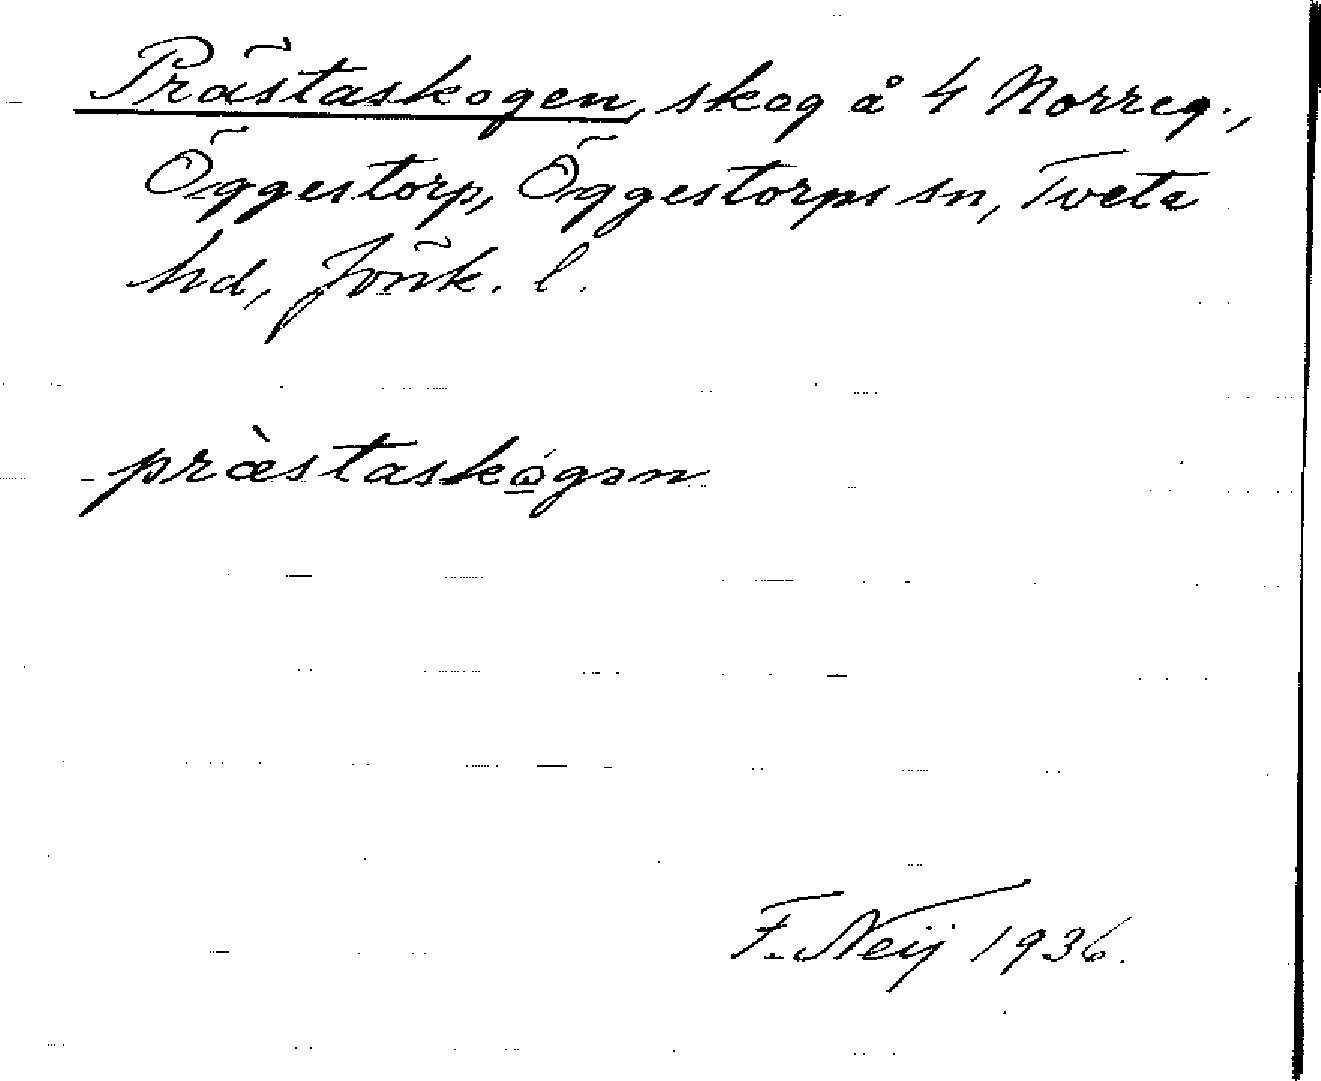 Prästaskogen, skog å 4 Norreg.,
Öggestorp, Öggestorps sn, Tveta
hd, Jönk. l.
præ̀staskógən
F. Neij 1936.